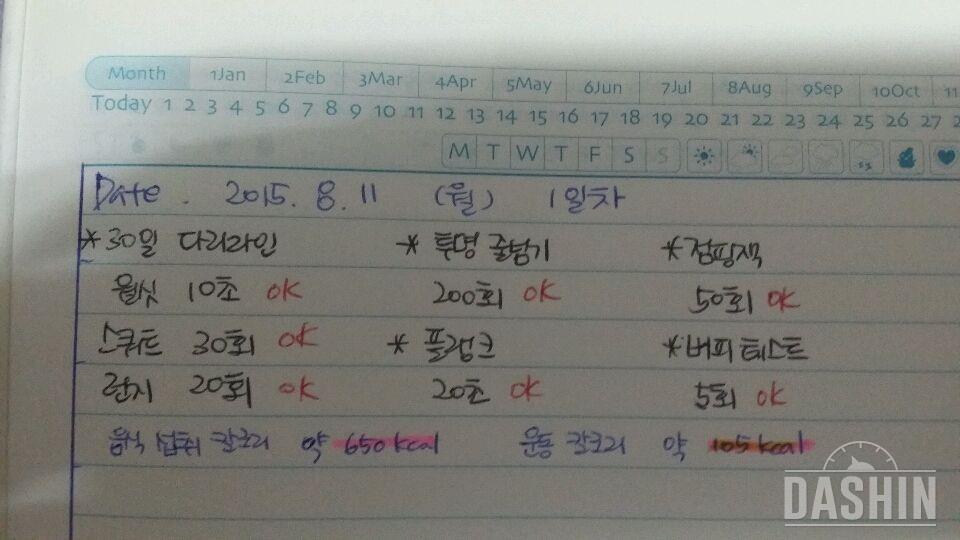 Month 1Jan 2Feb 3Mar 4Apr 5May 6Jun 7Jul 8Aug 9Sep 10Oct 11
Today 1 2 3 4 5 6 7 8 9 10 11 12 13 14 15 16 17 18 19 20 21 22 23 24 25 26 27 2
M T W T F S S
Date. 2015. 8. 11 (월) 1일차
*30일 다리라인 * 투명 줄넘기 *점핑잭
월싯 10초 OK 200회 OK 50회 OK
스쿼트 30회 OK * 플랭크 *버피테스트
런지 20회 OK 20초 OK 5회 OK
음식 섭취 칼로리 약 650kcal 운동 칼로리 약 105kcal
DASHIN